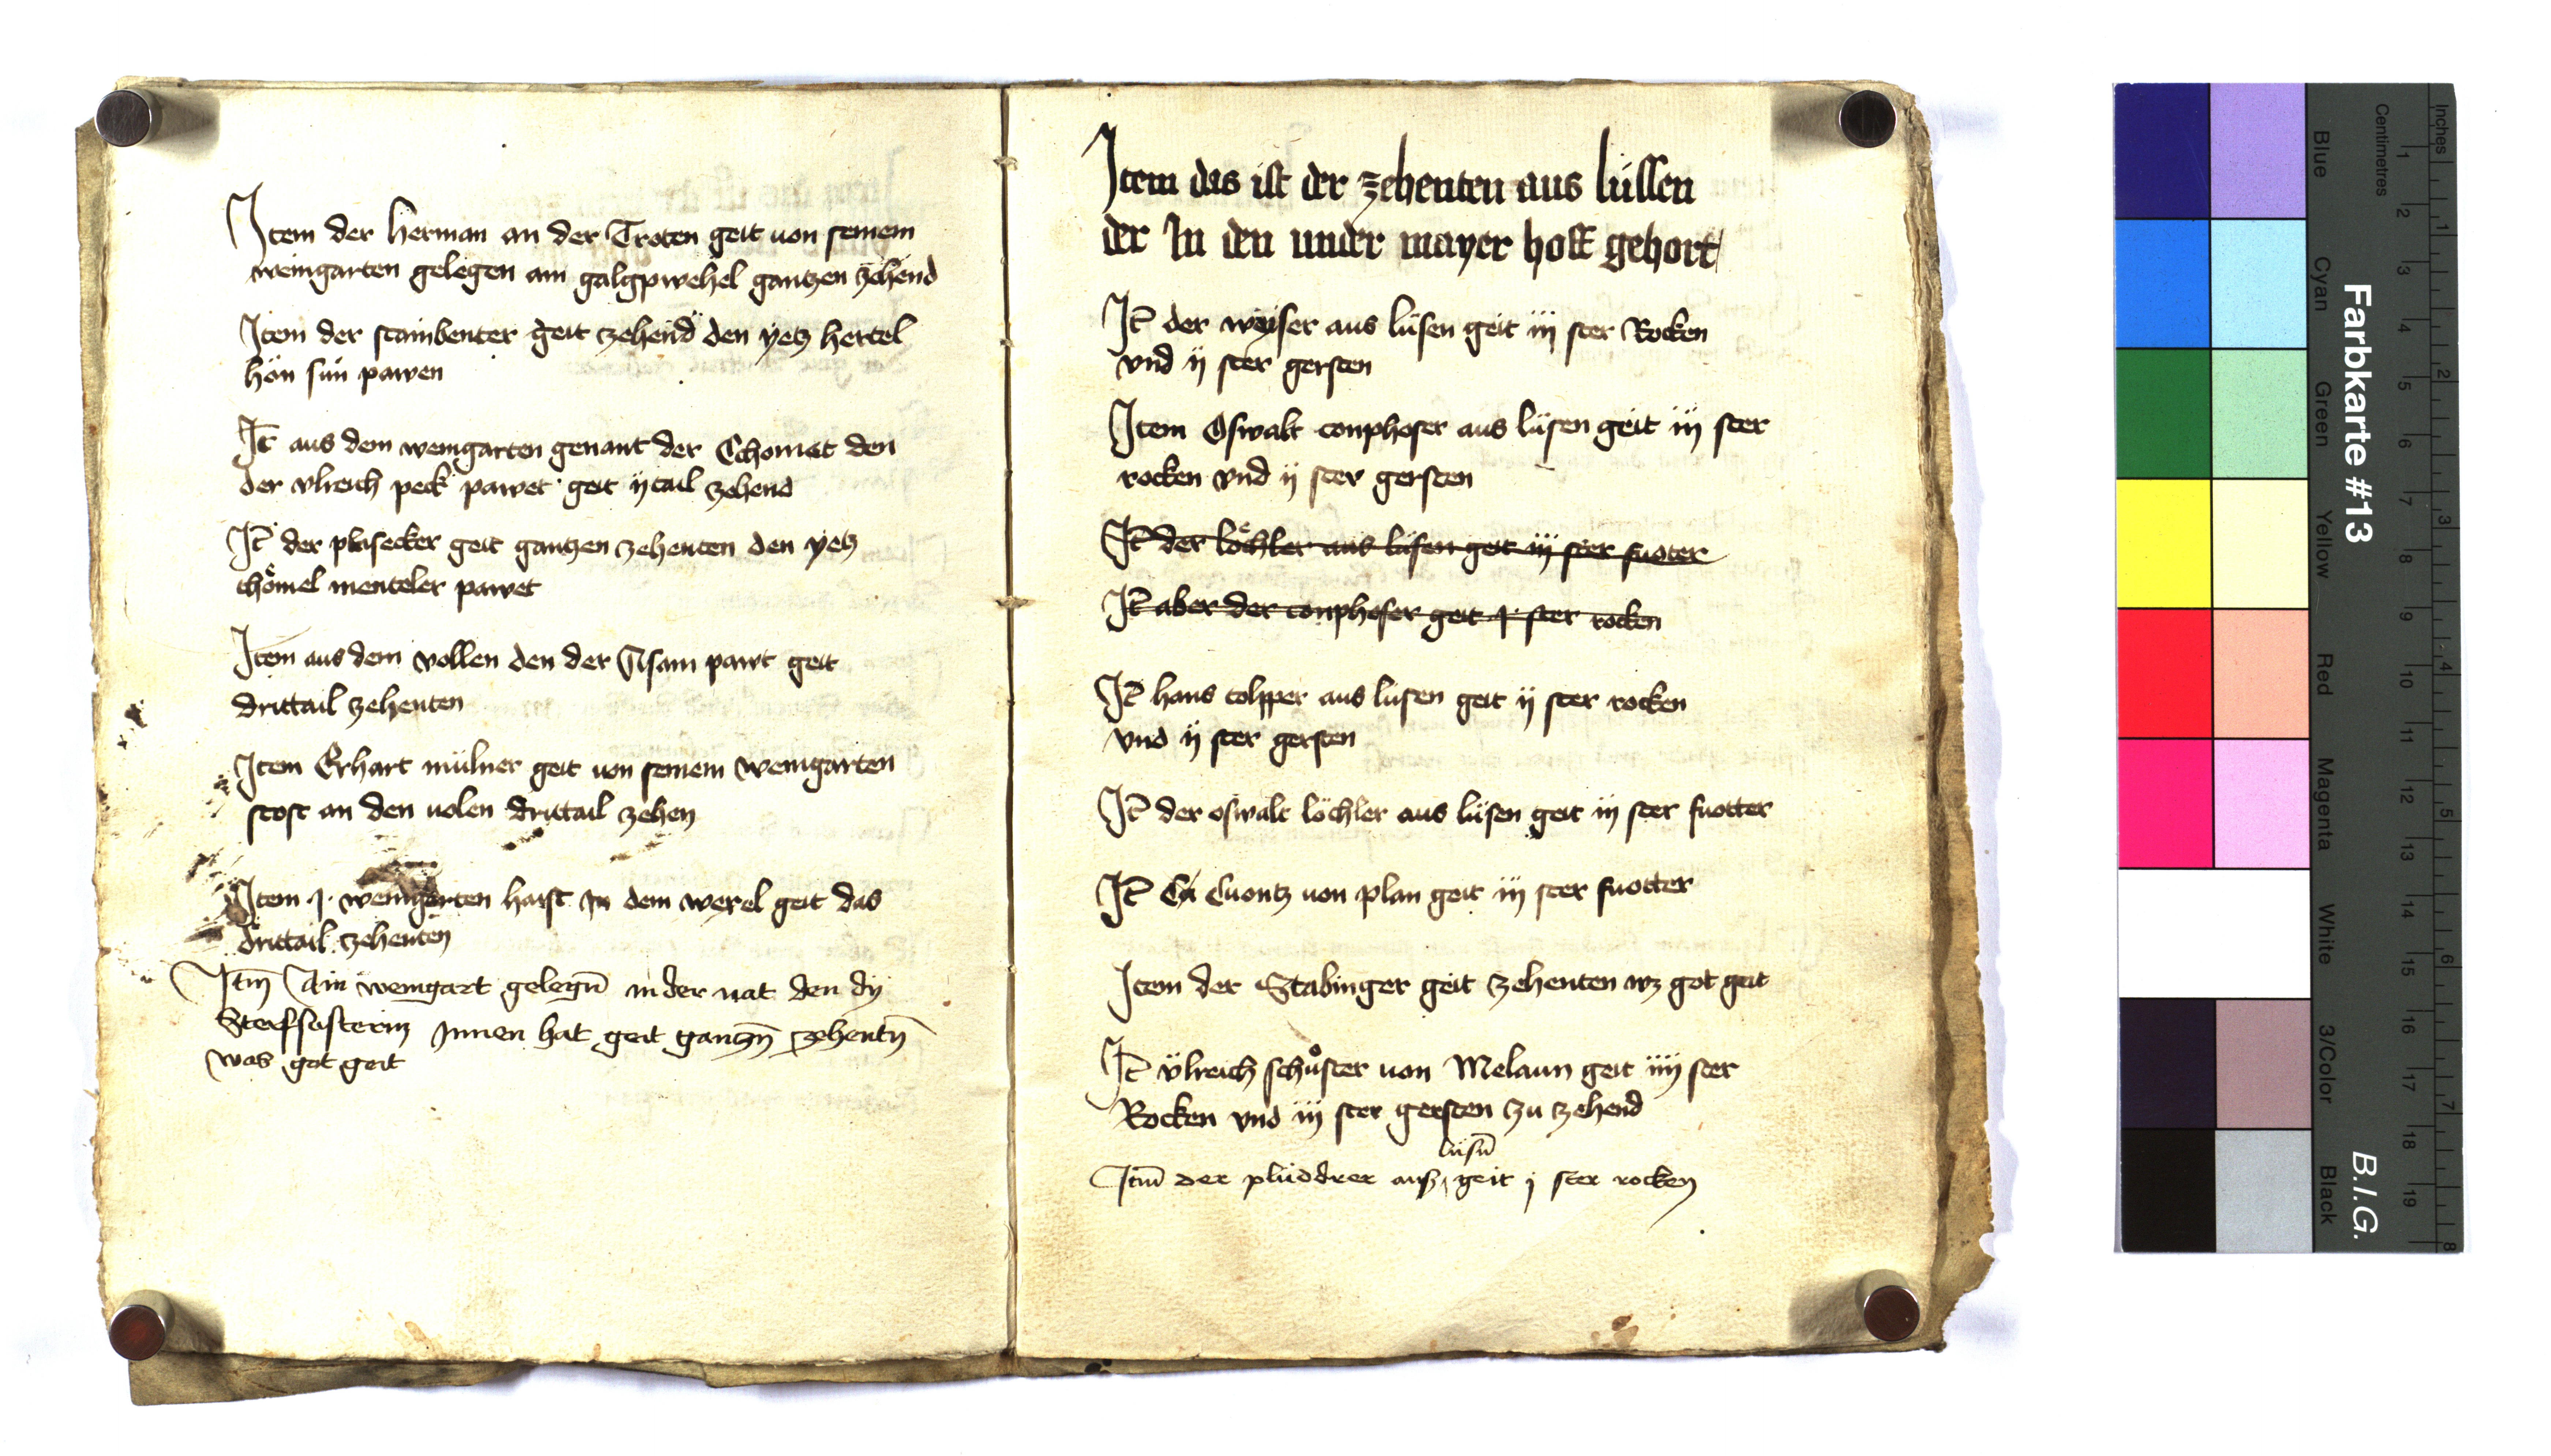 Item der herman an der Troten geit von seinem
weingarten gelegen am galgpwehel gantzen zehend
Item der stainbenter geit zehend den yetz hertel
hön sun pawen
It̄ aus dem weingarten genant der den
der vlreich peck pawet geit ij tail zehend
It̄ der plasecker geit gantzen zehenten den yetz
thömel menteler pawet
Item aus dem vollen den der Asam pawt geit
drittail zehenten
Item Erhart mülner geit von seinem weingarten
stost an den volen drittail zehen
Item .j. weingarten haist In dem geit das
drittail zehenten
Itm̄ Ain weingart gelegn̄ in der nat den dy
Innen hat geit gantzn̄ zehentn̄
was got geit
Item das ist der zehenten aus lüssen
der In den under mayer hoff gehort
It̄ der weyser aus lüsen geit iij ster Rocken
vnd ij ster gersten
Item Oswalt comphofer aus lüsen geit iij ster
rocken vnd ij ster gersten
It̄ der löchler aus lüsen geit iij ster fuoter
It̄ aber der comphofer geit .j. ster rocken
It̄ hans aus lusen geit ij ster rocken
vnd ij ster gersten
It̄ der oswalt löchler aus lüsen geit iij ster fuotter
It̄ Cuontz von plan geit iij ster fuotter
Item der Stabinger geit zehenten wz got geit
It̄ vlreich schůster von Melaun geit iiij ster
Rocken vnd iij ster gersten zu zehend
lüsn̄
Itm̄ der plüddrer aus geit j ster rocken
Farbkarte #13
B.I.G.
Inches
Centimetres
1 2 3 4 5 6 7 8
1 2 3 4 5 6 7 8 9 10 11 12 13 14 15 16 17 18 19
Blue
Cyan
Green
Yellow
Red
Magenta
White
3/Color
Black